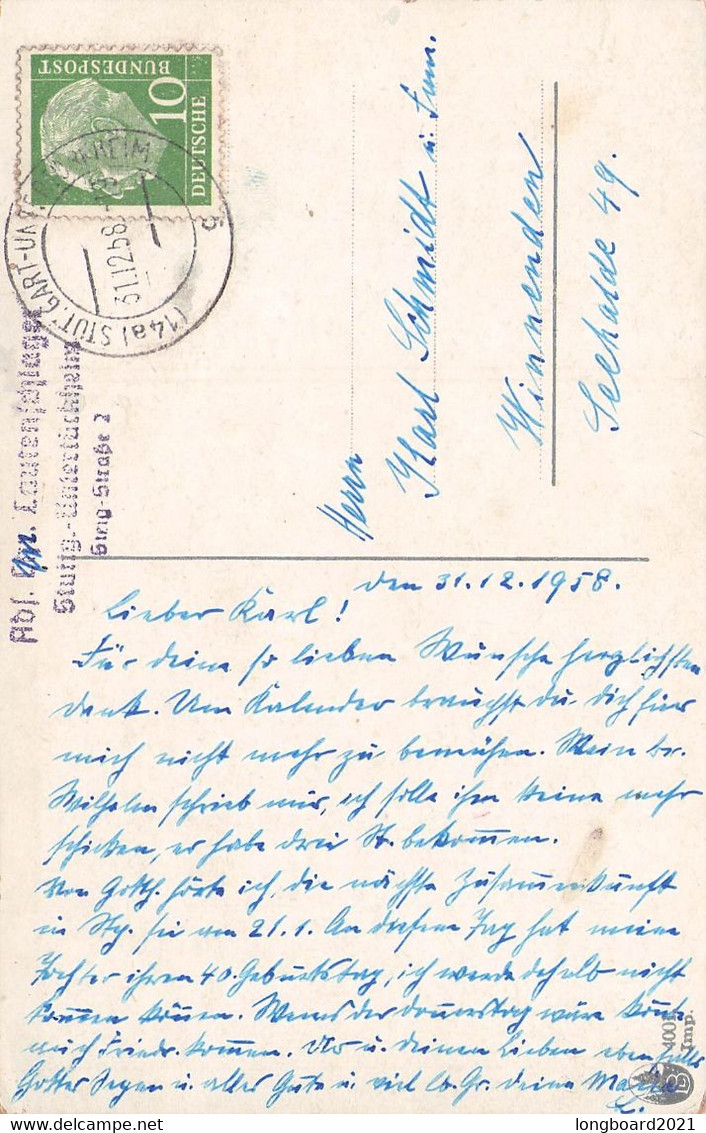 DEUTSCHE
BUNDESPOST
10
(14a) STUTTGART-UNTERTÜRKHEIM
31.12.58
g
Abs. Lautenschlager
Stuttg.-Untertürkheim
Steig-Straße 2
Herrn
Karl Schmidt u. Fam.
Winnenden
Seehalde 49.
den 31.12.1958.
Lieber Karl!
Für deine so lieben Wünsche herzlichsten
Dank. Um Kalender brauchst du dich für
mich nicht mehr zu bemühen. Mein Br.
Wilhelm schrieb mir, ich solle ihm keine mehr
schicken, er habe drei St. bekommen.
Von Gotth. hörte ich, die nächste Zusammenkunft
in Stg. sei am 21.1. An diesem Tag hat meine
Tochter ihren 40. Geburtstag, ich werde deshalb nicht
kommen können. Wenns der Donnerstag wäre könnte
auch Friedr. kommen. Dir u. deinen Lieben ebenfalls
Gottes Segen u. alles Gute u. viel lb. Gr. deine
L.
4001
Imp.
longboard2021